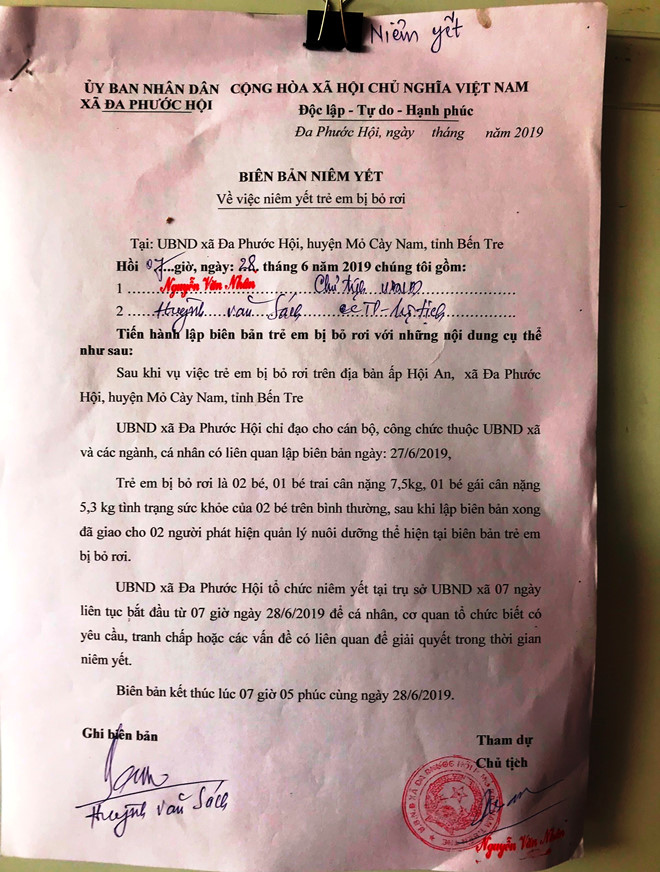 Niêm yết
ỦY BAN NHÂN DÂN CỘNG HÒA XÃ HỘI CHỦ NGHĨA VIỆT NAM
XÃ ĐA PHƯỚC HỘI Độc lập - Tự do - Hạnh phúc
Đa Phước Hội, ngày tháng năm 2019
BIÊN BẢN NIÊM YẾT
Về việc niêm yết trẻ em bị bỏ rơi
Tại: UBND xã Đa Phước Hội, huyện Mỏ Cày Nam, tỉnh Bến Tre
Hồi 07...giờ, ngày: 28. tháng 6 năm 2019 chúng tôi gồm:
1 Nguyễn Văn Nhân Chủ tịch UBND
2 Huỳnh văn Sách CCTP-Hộ tịch
Tiến hành lập biên bản trẻ em bị bỏ rơi với những nội dung cụ thể
như sau:
Sau khi vụ việc trẻ em bị bỏ rơi trên địa bàn ấp Hội An, xã Đa Phước
Hội, huyện Mỏ Cày Nam, tỉnh Bến Tre
UBND xã Đa Phước Hội chỉ đạo cho cán bộ, công chức thuộc UBND xã
và các ngành, cá nhân có liên quan lập biên bản ngày: 27/6/2019,
Trẻ em bị bỏ rơi là 02 bé, 01 bé trai cân nặng 7,5kg, 01 bé gái cân nặng
5,3 kg tình trạng sức khỏe của 02 bé trên bình thường, sau khi lập biên bản xong
đã giao cho 02 người phát hiện quản lý nuôi dưỡng thể hiện tại biên bản trẻ em
bị bỏ rơi.
UBND xã Đa Phước Hội tổ chức niêm yết tại trụ sở UBND xã 07 ngày
liên tục bắt đầu từ 07 giờ ngày 28/6/2019 để cá nhân, cơ quan tổ chức biết có
yêu cầu, tranh chấp hoặc các vấn đề có liên quan để giải quyết trong thời gian
niêm yết.
Biên bản kết thúc lúc 07 giờ 05 phúc cùng ngày 28/6/2019.
Ghi biên bản Tham dự
Chủ tịch
Huỳnh văn Sách
Nguyễn Văn Nhân